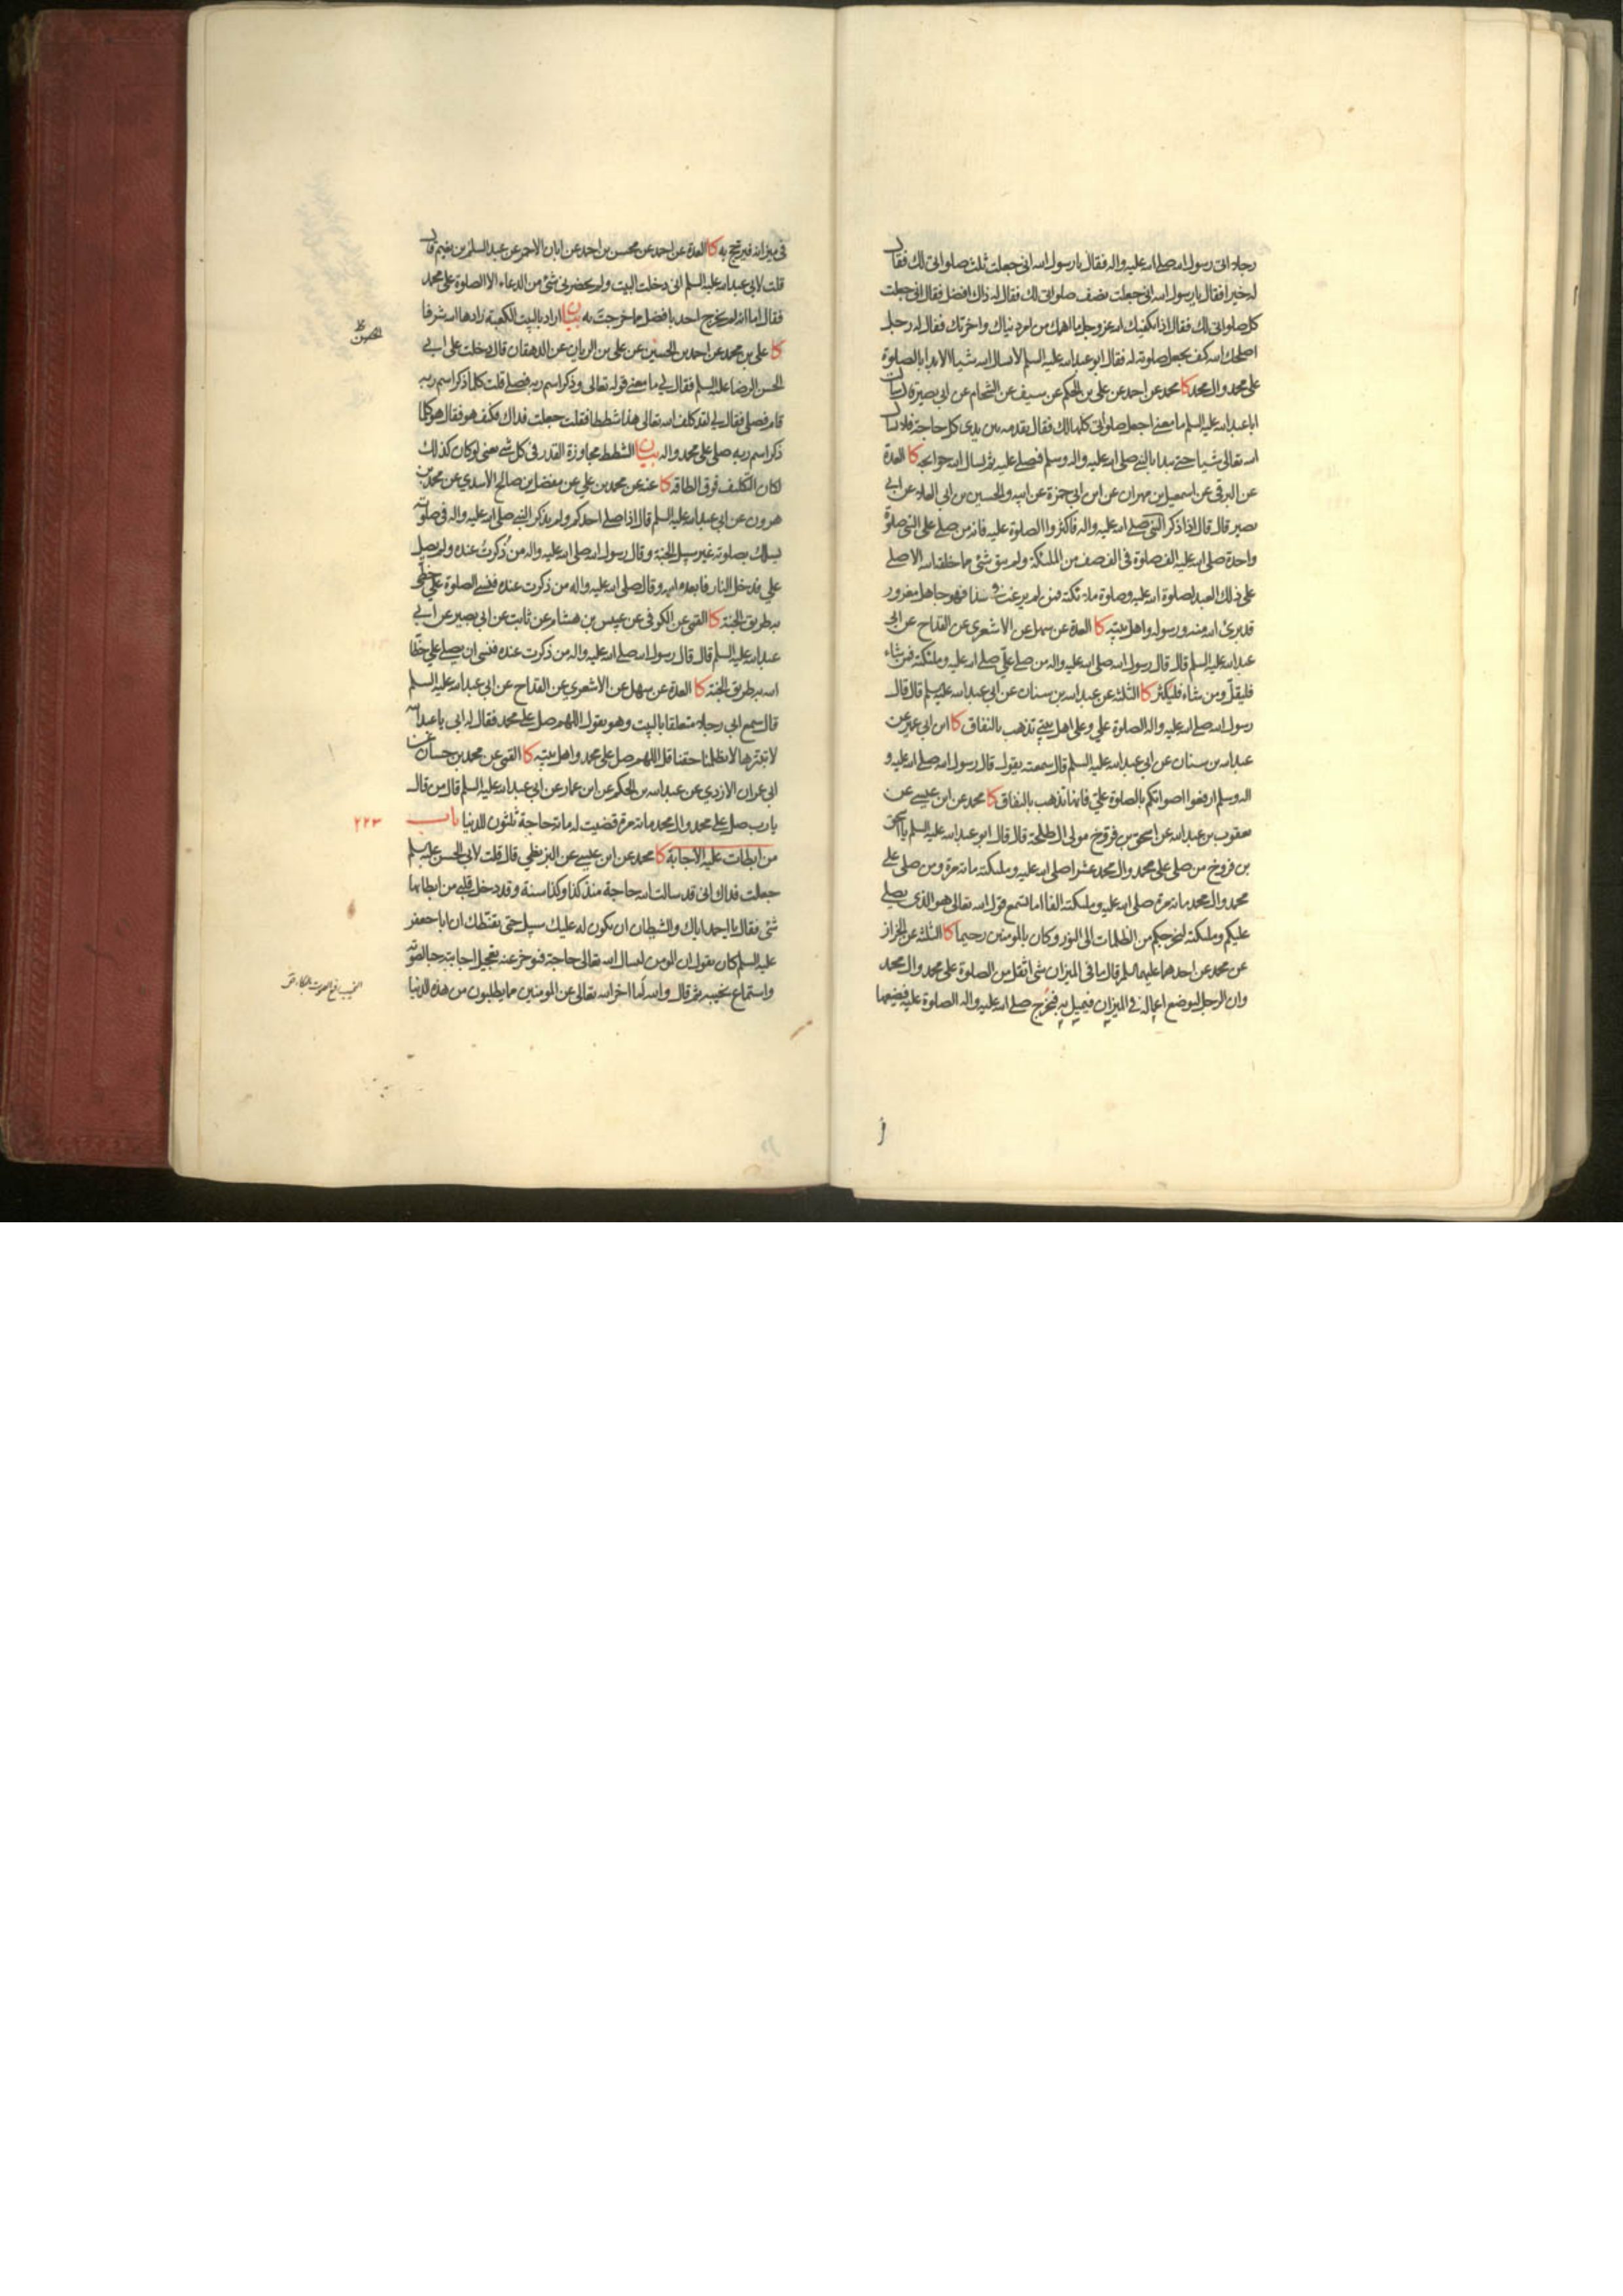 رجلا اتى رسول الله صلى الله عليه واله فقال يا رسول الله انى جعلت ثلث صلواتى لك فقال
له خيرا فقال يا رسول الله انى جعلت نصف صلواتى لك فقال له ذاك افضل فقال انى جعلت
كل صلواتى لك فقال اذا يكفيك الله عز وجل ما اهمك من امر دنياك واخرتك فقال له رجل
اصلحك الله كيف يجعل صلوته له فقال ابو عبد الله عليه السلم لا يسال الله شيئا الا بدا بالصلوة
على محمد وال محمد كا محمد عن احمد عن على بن الحكم عن سيف عن الشحام عن ابى بصير قال سالت
ابا عبد الله عليه السلم ما معنى اجعل صلواتى كلها لك فقال يقدمه بين يدى كل حاجة فلا يسال
الله تعالى شيا حتى يبدا بالنبى صلى الله عليه واله وسلم فيصلى عليه ثم يسال الله حوايجه كا العدة
عن البرقى عن اسمعيل بن مهران عن ابن ابى حمزة عن ابيه والحسين بن ابى العلا عن ابى
بصير قال قال اذا ذكر النبى صلى الله عليه واله فاكثروا الصلوة عليه فانه من صلى على النبى صلوة
واحدة صلى الله عليه الف صلوة فى الف صف من الملئكة ولم يبق شئ مما خلقه الله الا صلى
على ذلك العبد لصلوة الله عليه وصلوة ملائكته فمن لم يرغب فى هذا فهو جاهل مغرور
قد برئ الله منه ورسوله واهل بيته كا العدة عن سهل عن الاشعرى عن القداح عن ابى
عبد الله عليه السلم قال قال رسول الله صلى الله عليه واله من صلى على صلى الله عليه وملئكته فمن شاء
فليقل ومن شاء فليكثر كا الثلثة عن عبد الله بن سنان عن ابى عبد الله عليه السلم قال قال
رسول الله صلى الله عليه واله الصلوة على وعلى اهل بيتى تذهب بالنفاق كا ابن ابى عمير عن
عبد الله بن سنان عن ابى عبد الله عليه السلم قال سمعته يقول قال رسول الله صلى الله عليه و
اله وسلم ارفعوا اصواتكم بالصلوة على فانها تذهب بالنفاق كا محمد عن ابن عيسى عن
يعقوب بن عبد الله عن اسحق بن فروخ مولى ال طلحة قال قال ابو عبد الله عليه السلم يا اسحق
بن فروخ من صلى على محمد وال محمد عشرا صلى الله عليه وملئكته مائة مرة ومن صلى على
محمد وال محمد مائة مرة صلى الله عليه وملئكته الفا اما تسمع قول الله تعالى هو الذى يصلى
عليكم وملئكته ليخرجكم من الظلمات الى النور وكان بالمومنين رحيما كا الثلثة عن الخراز
عن محمد عن احدهما عليهما السلم قال ما فى الميزان شئ اثقل من الصلوة على محمد وال محمد
وان الرجل ليوضع اعماله فى الميزان فيميل به فيخرج صلى الله عليه واله الصلوة عليه فيضعها
فى ميزانه فيرجح به كا العدة عن احمد عن محسن بن احمد عن ابان الاحمر عن عبد السلم بن نعيم قال
قلت لابى عبد الله عليه السلم انى دخلت البيت ولم يحضرنى شئ من الدعاء الا الصلوة على محمد
فقال اما انه لم يخرج احد بافضل مما خرجت به بيان اراد بالبيت الكعبة زادها الله شرفا
كا على بن محمد عن احمد بن الحسين عن على بن الريان عن الدهقان قال دخلت على ابى
الحسن الرضا عليه السلم فقال لى ما معنى قوله تعالى وذكر اسم ربه فصلى قلت كلما ذكر اسم ربه
قام فصلى فقال لى لقد كلف الله تعالى هذا شططا فقلت جعلت فداك فكيف هو فقال هو كلما
ذكر اسم ربه صلى على محمد واله بيان الشطط مجاوزة القدر فى كل شئ يعنى لو كان كذلك
لكان التكليف فوق الطاقة كا عنه عن محمد بن على عن مفضل بن صالح الاسدى عن محمد بن
هرون عن ابى عبد الله عليه السلم قال اذا صلى احدكم ولم يذكر النبى صلى الله عليه واله فى صلوته
يسلك بصلوته غير سبيل الجنة وقال رسول الله صلى الله عليه واله من ذكرت عنده ولم يصل
على فدخل النار فابعده الله وقال صلى الله عليه واله من ذكرت عنده فنسى الصلوة على خطئ
به طريق الجنة كا القمى عن الكوفى عن عبيس بن هشام عن ثابت عن ابى بصير عن ابى
عبد الله عليه السلم قال قال رسول الله صلى الله عليه واله من ذكرت عنده فنسى ان يصلى على خطا
الله به طريق الجنة كا العدة عن سهل عن الاشعرى عن القداح عن ابى عبد الله عليه السلم
قال سمع ابى رجلا متعلقا بالبيت وهو يقول اللهم صل على محمد فقال له ابى يا عبد الله
لا تبترها لا تظلمنا حقنا قل اللهم صل على محمد واهل بيته كا القمى عن محمد بن حسان عن
ابى عمران الازدى عن عبد الله بن الحكم عن ابن عمار عن ابى عبد الله عليه السلم قال من قال
يا رب صل على محمد وال محمد مائة مرة قضيت له مائة حاجة ثلثون للدنيا باب
٢٢٣
من ابطات عليه الاجابة كا محمد عن ابن عيسى عن البزنطى قال قلت لابى الحسن عليه السلم
جعلت فداك انى قد سالت الله حاجة منذ كذا وكذا سنة وقد دخل قلبى من ابطائها
شئ فقال يا احمد اياك والشيطان ان يكون له عليك سبيل حتى يقنطك ان ابا جعفر
عليه السلم كان يقول ان المومن ليسال الله تعالى حاجة فيوخر عنه تعجيل اجابته حبا لصوته
واستماع نحيبه ثم قال والله لما اخر الله تعالى عن المومنين مما يطلبون من هذه الدنيا